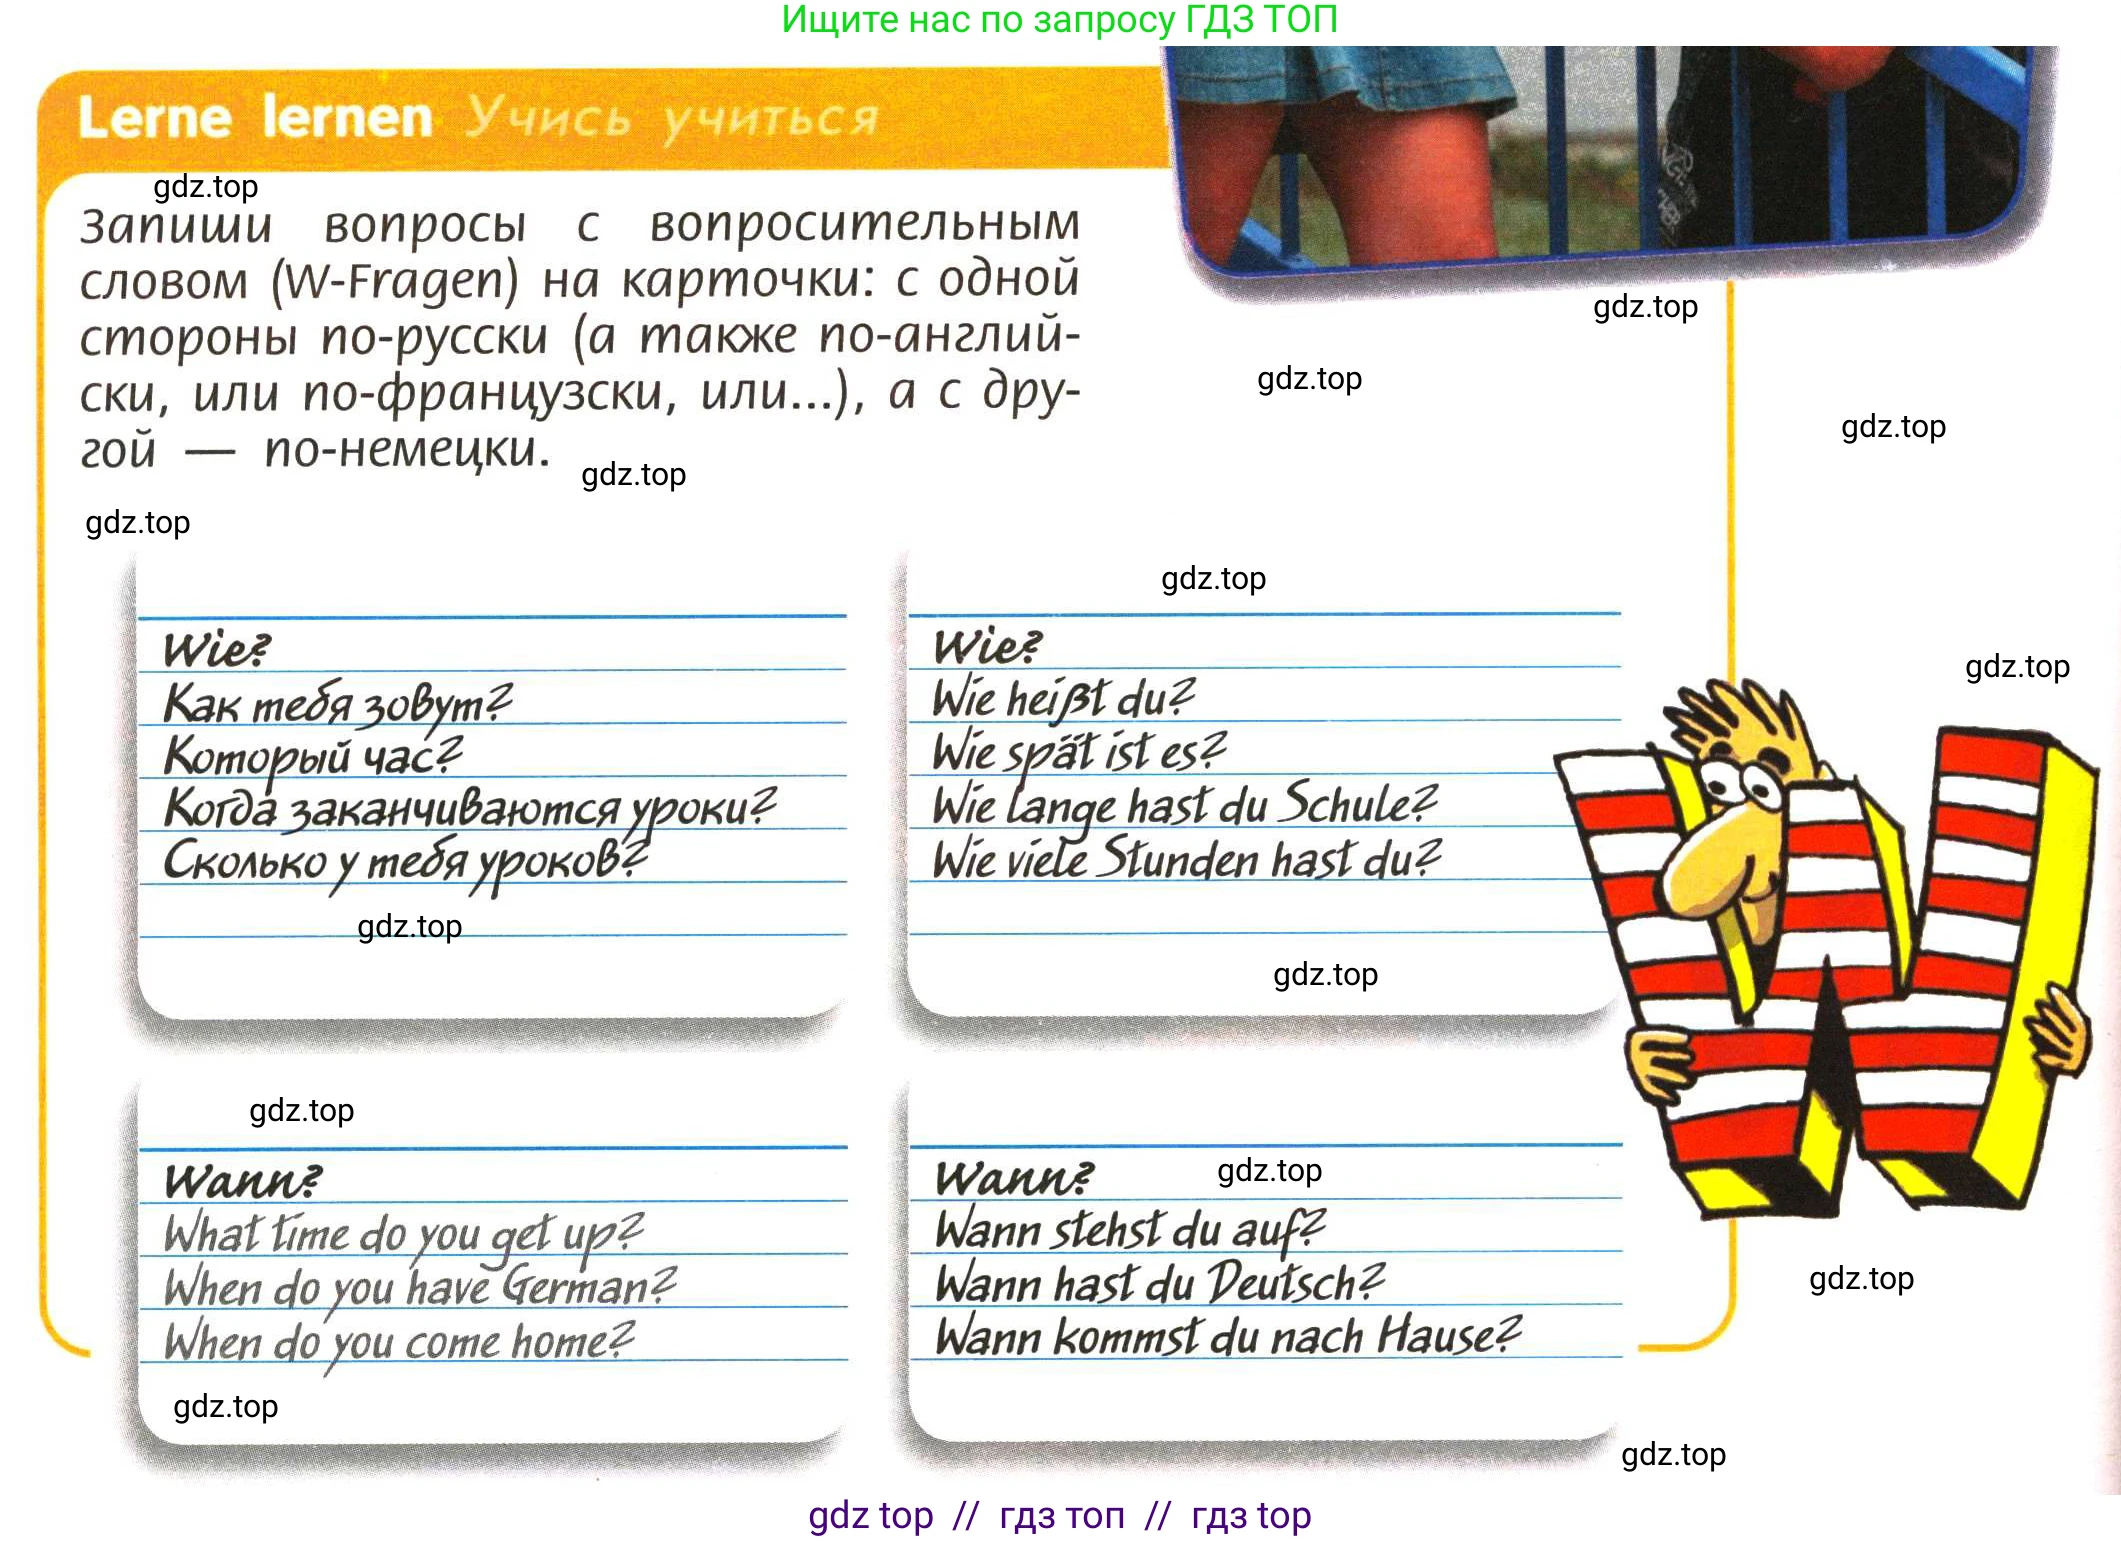 Ищите нас по запросу ГДЗ ТОП
Lerne lernen Учись учиться
gdz.top
Запиши вопросы с вопросительным
словом (W-Fragen) на карточки: с одной
стороны по-русски (а также по-англий-
ски, или по-французски, или...), а с дру-
гой — по-немецки.
gdz.top
gdz.top
gdz.top
gdz.top
gdz.top
gdz.top
gdz.top
Wie?
Как тебя зовут?
Который час?
Когда заканчиваются уроки?
Сколько у тебя уроков?
gdz.top
Wie?
Wie heißt du?
Wie spät ist es?
Wie lange hast du Schule?
Wie viele Stunden hast du?
gdz.top
gdz.top
Wann?
What time do you get up?
When do you have German?
When do you come home?
gdz.top
Wann?
gdz.top
Wann stehst du auf?
Wann hast du Deutsch?
Wann kommst du nach Hause?
gdz.top
gdz.top
gdz top // гдз топ // гдз top